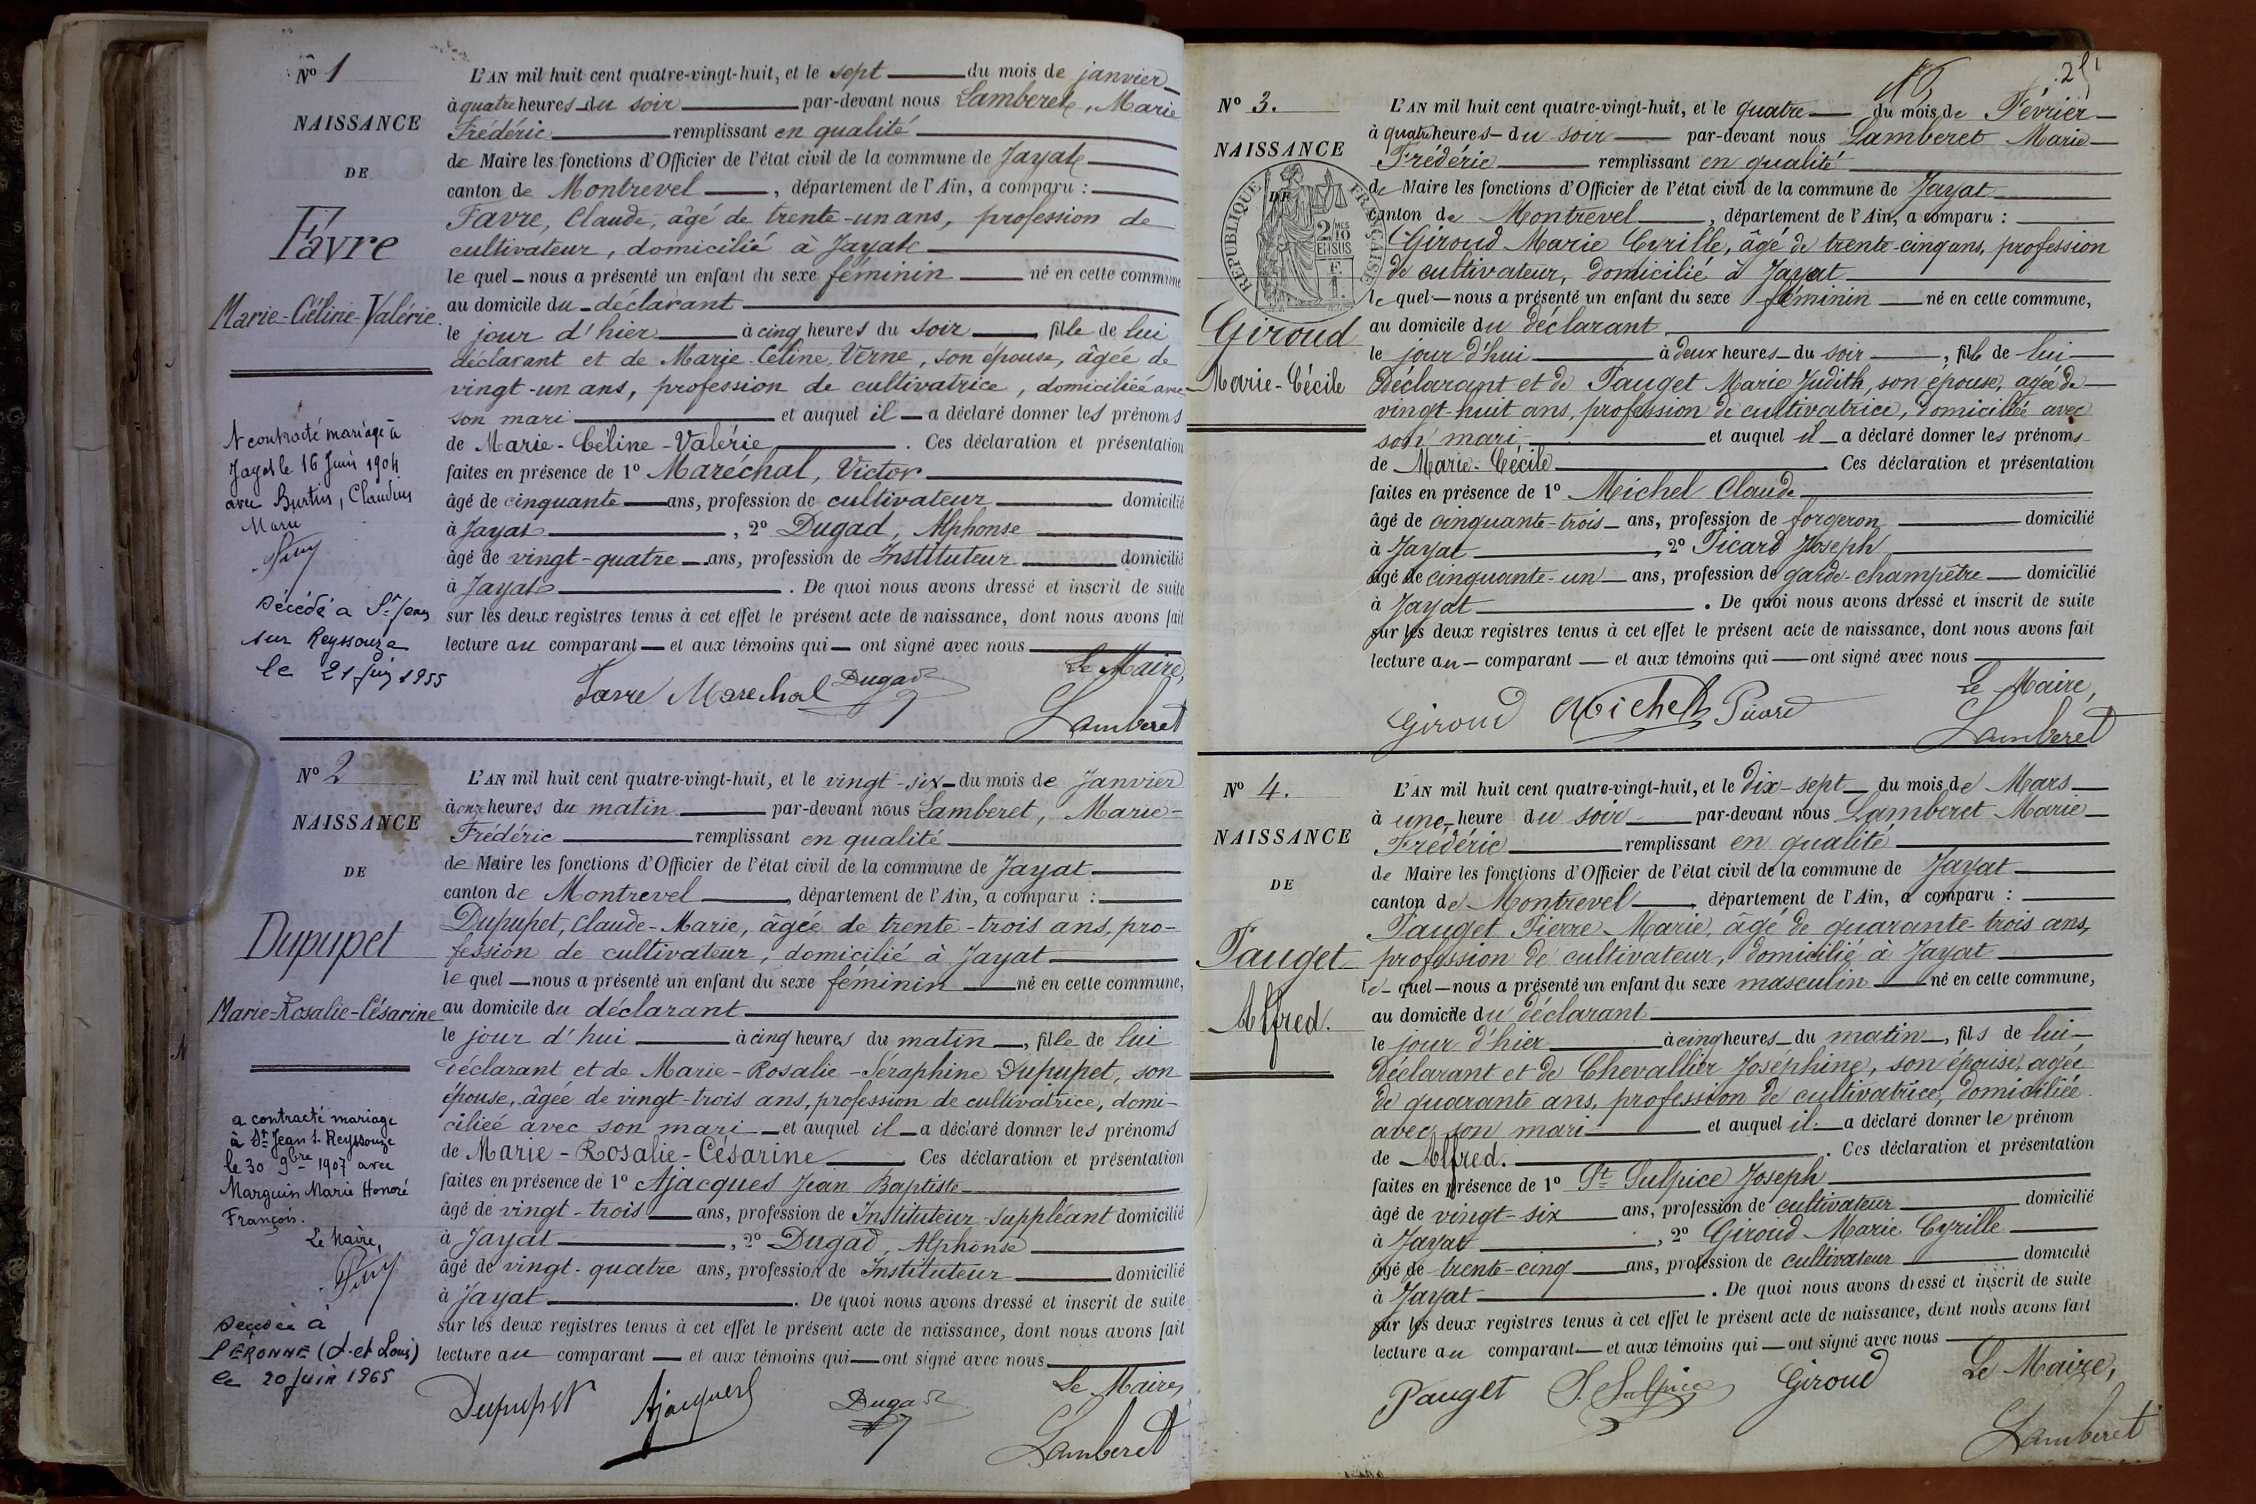 N° 1
NAISSANCE
DE
Favre
Marie-Céline-Valérie.
A contracté mariage à
Jayat le 16 Juin 1904
avec Burtin, Claudius
Marie
Décédé à St-Jean
sur Reyssouze
le 21 Juin 1955
L'AN mil huit cent quatre-vingt-huit, et le sept du mois de janvier
à quatre heures du soir par-devant nous Lamberet, Marie
Frédéric remplissant en qualité
de Maire les fonctions d'Officier de l'état civil de la commune de Jayat
canton de Montrevel, département de l'Ain, a comparu :
Favre, Claude, âgé de trente-un ans, profession de
cultivateur, domicilié à Jayat
le quel nous a présenté un enfant du sexe féminin né en cette commune
au domicile du déclarant
le jour d'hier à cinq heures du soir, fille de lui
déclarant et de Marie-Céline Verne, son épouse, âgée de
vingt-un ans, profession de cultivatrice, domiciliée avec
son mari et auquel il a déclaré donner les prénoms
de Marie-Céline-Valérie. Ces déclaration et présentation
faites en présence de 1° Maréchal, Victor
âgé de cinquante ans, profession de cultivateur domicilié
à Jayat, 2° Dugad, Alphonse
âgé de vingt-quatre ans, profession de Instituteur domicilié
à Jayat. De quoi nous avons dressé et inscrit de suite
sur les deux registres tenus à cet effet le présent acte de naissance, dont nous avons fait
lecture au comparant et aux témoins qui ont signé avec nous
Le Maire,
Favre Marechal Dugad
Lamberet
N° 2
NAISSANCE
DE
Dupupet
Marie-Rosalie-Césarine
a contracté mariage
à St Jean s. Reyssouze
le 30 9bre 1907 avec
Marguin Marie Honoré
François.
Le Maire,
Décédée à
PÉRONNE (S. et Loire)
le 20 Juin 1965
L'AN mil huit cent quatre-vingt-huit, et le vingt-six du mois de Janvier
à onze heures du matin par-devant nous Lamberet, Marie-
Frédéric remplissant en qualité
de Maire les fonctions d'Officier de l'état civil de la commune de Jayat
canton de Montrevel, département de l'Ain, a comparu :
Dupupet, Claude-Marie, âgée de trente-trois ans, pro-
fession de cultivateur, domicilié à Jayat
le quel nous a présenté un enfant du sexe féminin né en cette commune,
au domicile du déclarant
le jour d'hui à cinq heures du matin, fille de lui
déclarant et de Marie-Rosalie-Séraphine Dupupet, son
épouse, âgée de vingt-trois ans, profession de cultivatrice, domi-
ciliée avec son mari et auquel il a déclaré donner les prénoms
de Marie-Rosalie-Césarine Ces déclaration et présentation
faites en présence de 1° Ajacques Jean Baptiste
âgé de vingt-trois ans, profession de Instituteur-suppléant domicilié
à Jayat, 2° Dugad, Alphonse
âgé de vingt-quatre ans, profession de Instituteur domicilié
à Jayat. De quoi nous avons dressé et inscrit de suite
sur les deux registres tenus à cet effet le présent acte de naissance, dont nous avons fait
lecture au comparant et aux témoins qui ont signé avec nous
Le Maire
Dupupet Ajacques Dugad
Lamberet
N° 3.
NAISSANCE
DE
RÉPUBLIQUE FRANÇAISE
2/10 EN SUS
Giroud
Marie-Cécile
L'AN mil huit cent quatre-vingt-huit, et le quatre du mois de Février
à quatre heures du soir par-devant nous Lamberet Marie
Frédéric remplissant en qualité
de Maire les fonctions d'Officier de l'état civil de la commune de Jayat
canton de Montrevel, département de l'Ain, a comparu :
Giroud Marie Cyrille, âgé de trente-cinq ans, profession
de cultivateur, domicilié à Jayat
le quel nous a présenté un enfant du sexe féminin né en cette commune,
au domicile du déclarant
le jour d'hui à deux heures du soir, fille de lui
déclarant et de Pauget Marie Judith, son épouse, agée de
vingt-huit ans, profession de cultivatrice, domiciliée avec
son mari, et auquel il a déclaré donner les prénoms
de Marie-Cécile. Ces déclaration et présentation
faites en présence de 1° Michel Claude
âgé de cinquante-trois ans, profession de forgeron domicilié
à Jayat, 2° Picard Joseph
âgé de cinquante-un ans, profession de garde-champêtre domicilié
à Jayat. De quoi nous avons dressé et inscrit de suite
sur les deux registres tenus à cet effet le présent acte de naissance, dont nous avons fait
lecture au comparant et aux témoins qui ont signé avec nous
Le Maire,
Giroud Michel Picard
Lamberet
N° 4.
NAISSANCE
DE
Pauget
Alfred.
L'AN mil huit cent quatre-vingt-huit, et le dix-sept du mois de Mars
à une heure du soir par-devant nous Lamberet Marie
Frédéric remplissant en qualité
de Maire les fonctions d'Officier de l'état civil de la commune de Jayat
canton de Montrevel, département de l'Ain, a comparu :
Pauget Pierre Marie, âgé de quarante-trois ans,
profession de cultivateur, domicilié à Jayat
le quel nous a présenté un enfant du sexe masculin né en cette commune,
au domicile du déclarant
le jour d'hier à cinq heures du matin, fils de lui
déclarant et de Chevallier Joséphine, son épouse, agée
de quarante ans, profession de cultivatrice, domiciliée
avec son mari et auquel il a déclaré donner le prénom
de Alfred. Ces déclaration et présentation
faites en présence de 1° St Sulpice Joseph
âgé de vingt-six ans, profession de cultivateur domicilié
à Jayat, 2° Giroud Marie Cyrille
âgé de trente-cinq ans, profession de cultivateur domicilié
à Jayat. De quoi nous avons dressé et inscrit de suite
sur les deux registres tenus à cet effet le présent acte de naissance, dont nous avons fait
lecture au comparant et aux témoins qui ont signé avec nous
Le Maire,
Pauget S. Sulpice Giroud
Lamberet